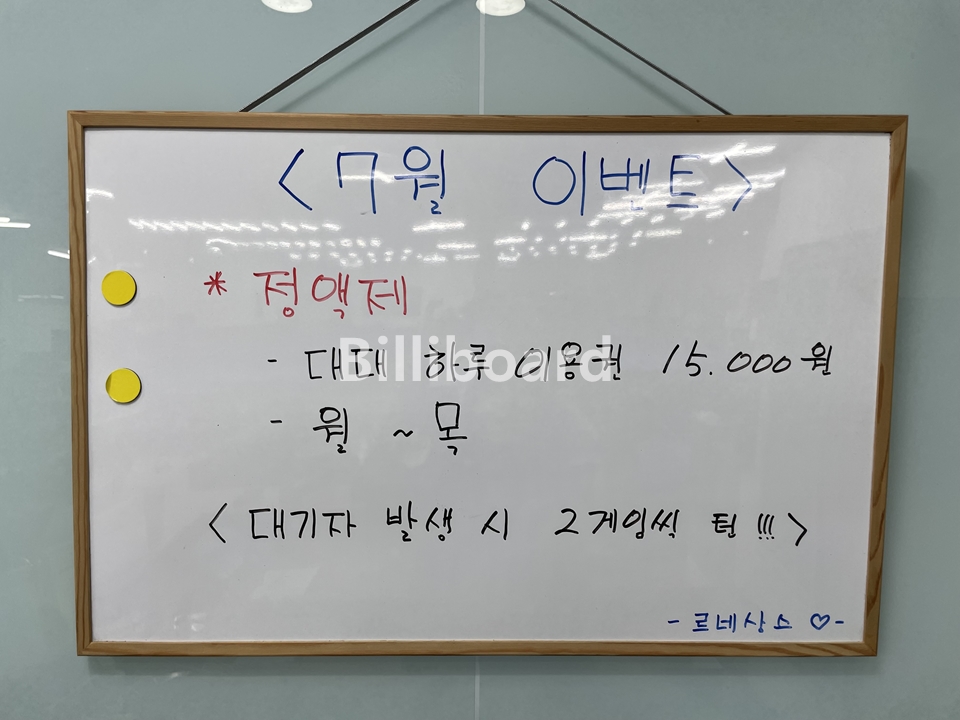 <7월 이벤트>
* 정액제
- 대대 하루 이용권 15.000원
- 월 ~ 목
<대기자 발생 시 2게임씩 턴!!!>
- 르네상스 ♡-
Billiboard